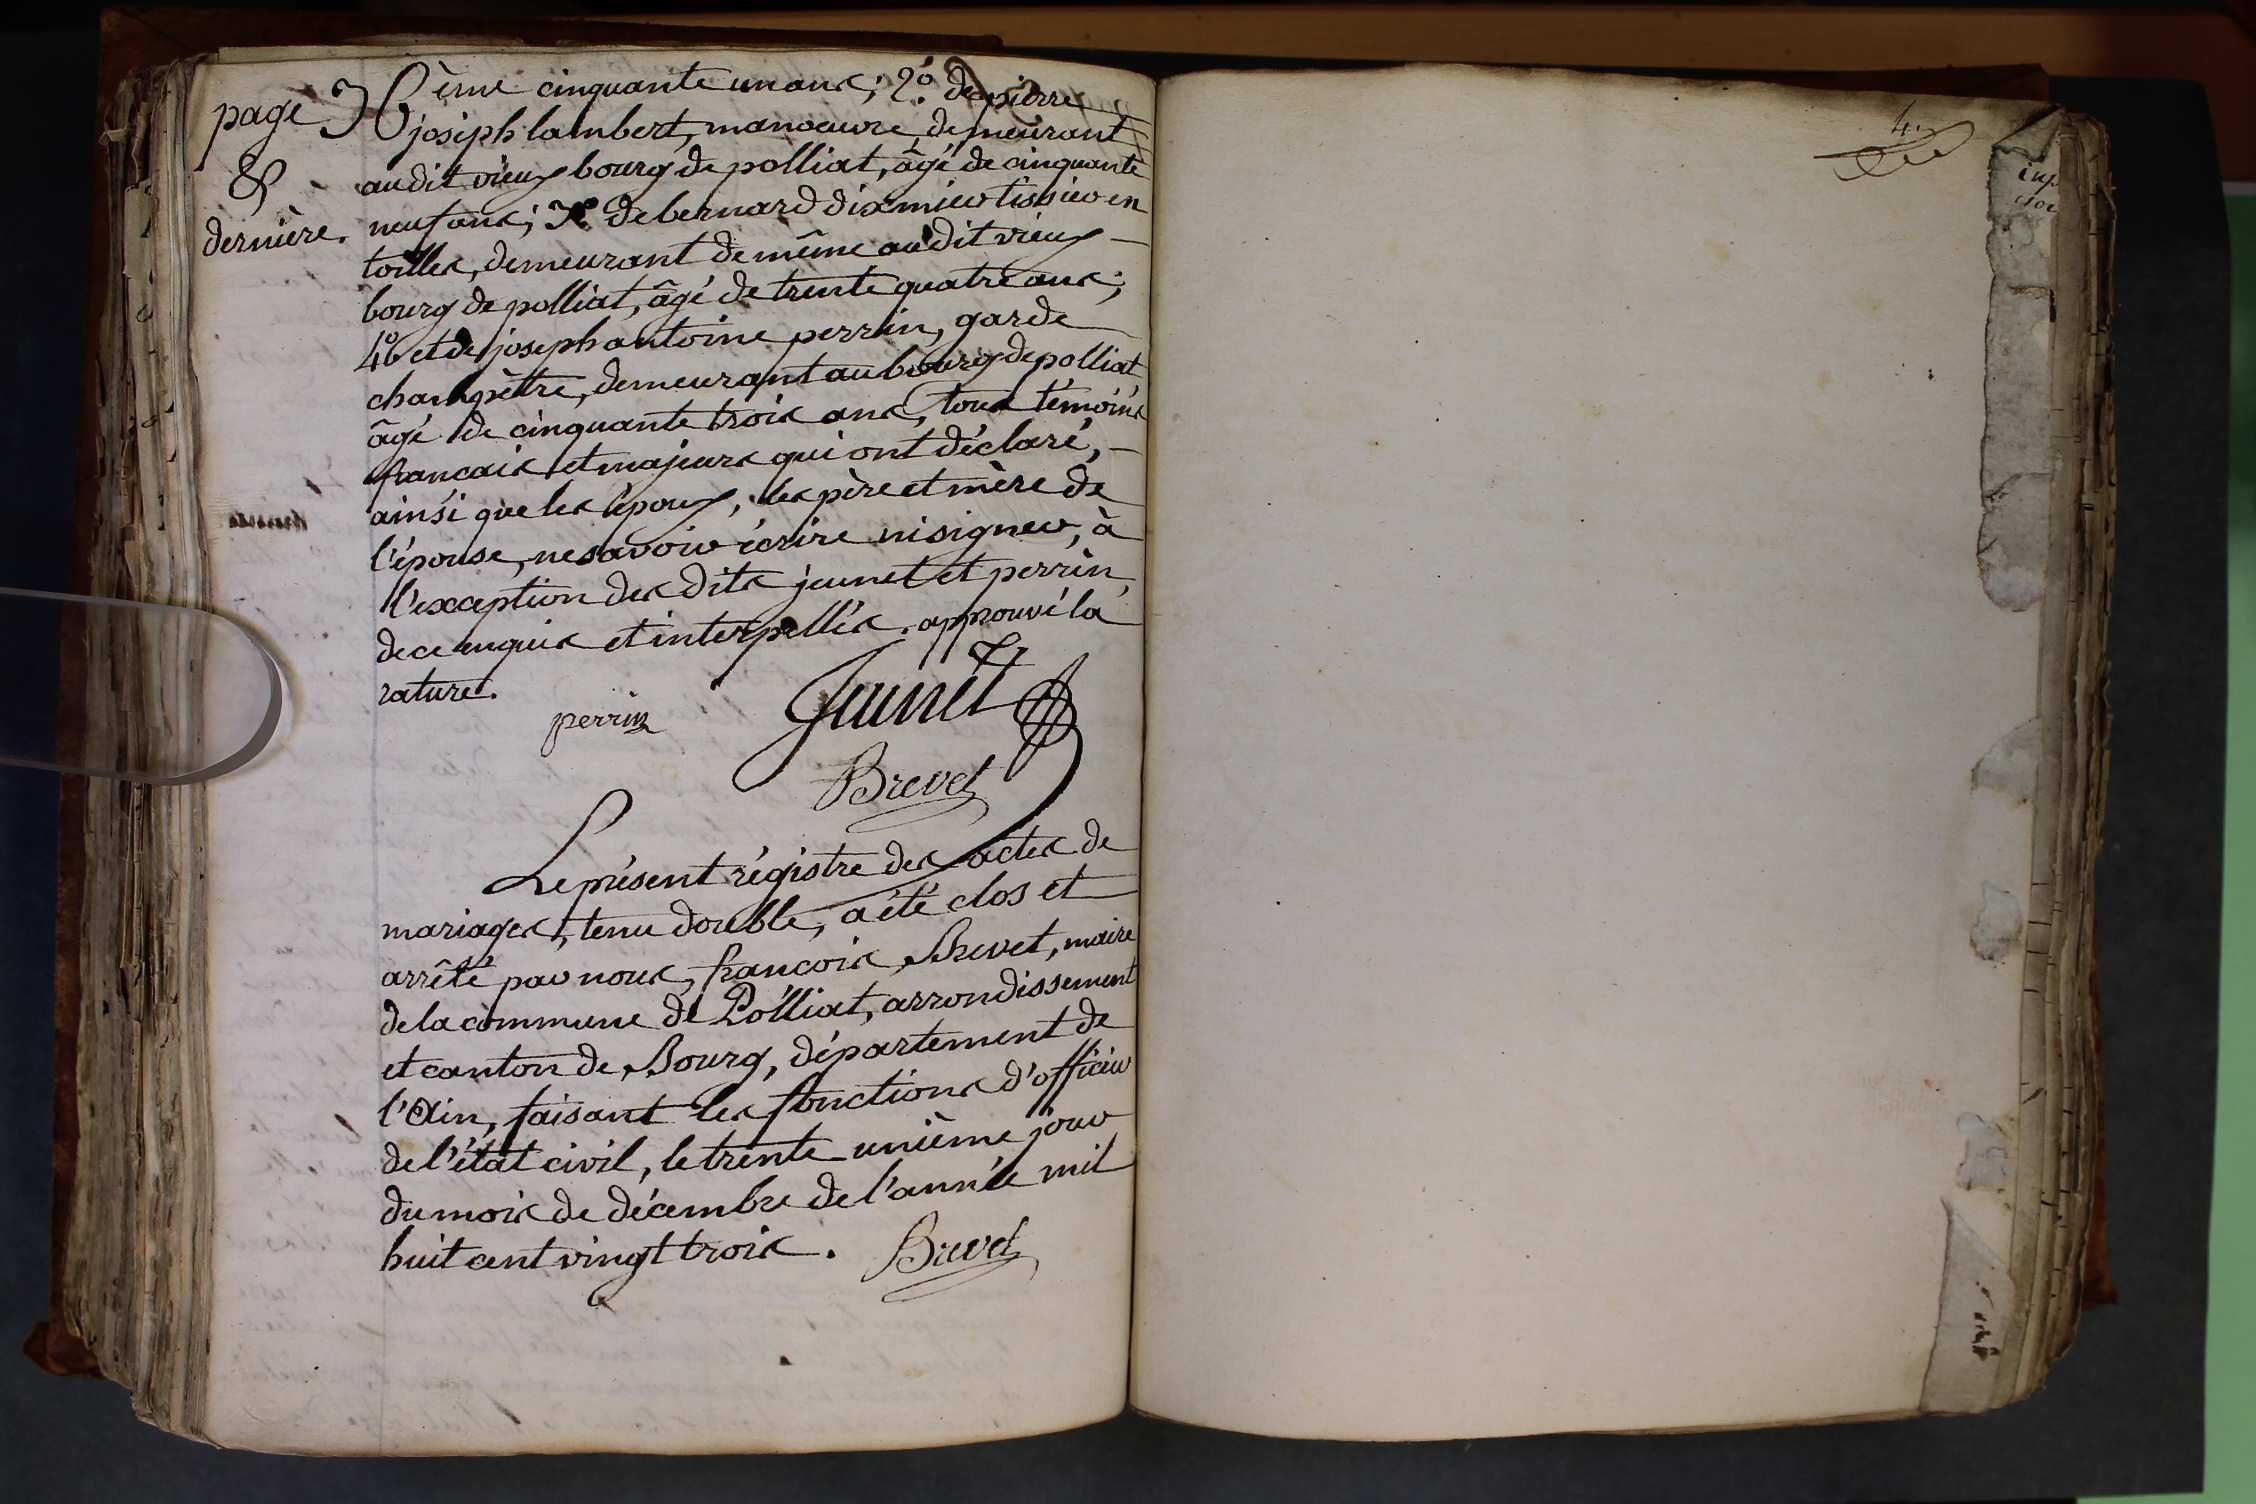 page 36ème
&
dernière.
cinquante un ans; 2o. de pierre
joseph lambert, manoeuvre, demeurant
audit vieux bourg de polliat, âgé de cinquante
neuf ans; 3o de bernard dixmier tissier en
toilles, demeurant de même audit vieux
bourg de polliat, âgé de trente quatre ans;
4o et de joseph antoine perrin, garde
champètre, demeurant au bourg de polliat
âgé de cinquante trois ans, tous témoins
francais et majeurs qui ont déclaré,
ainsi que les époux, les père et mère de
l'épouse, ne savoir écrire ni signer, à
l'exception des dits jeunet et perrin,
de ce enquis et interpellés. approuvé la
rature.
perrin Jeunet
Brevet
Le présent régistre des actes de
mariages, tenu double, a été clos et
arrêté par nous, francois Brevet, maire
de la commune de Polliat, arrondissement
et canton de Bourg, département de
l'Ain, faisant les fonctions d'officier
de l'état civil, le trente unième jour
du mois de décembre de l'année mil
huit cent vingt trois. Brevet
4.